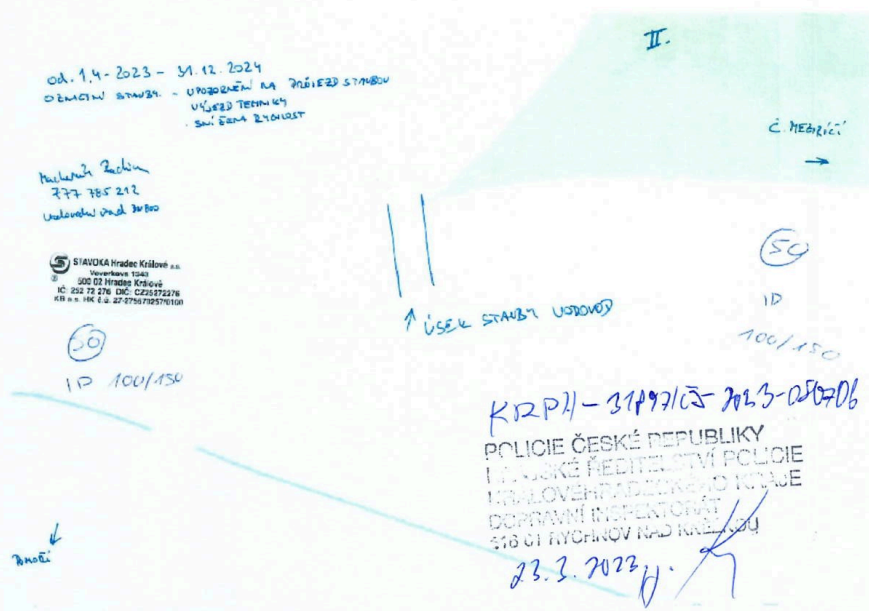 II.
od. 1.4-2023 - 31.12.2024
OZNAČENÍ STAVBY. - UPOZORNĚNÍ NA PRŮJEZD STAVBOU
VÝJEZD TECHNIKY
- SNÍŽENÁ RYCHLOST
Č. MEZIŘÍČÍ
→
777 785 212
STAVOKA Hradec Králové a.s.
Veverkova 1343
500 02 Hradec Králové
IČ: 252 72 276 DIČ: CZ25272276
KB a.s. HK č.ú. 27-2756702570100
50
IP
100/150
↑ ÚSEK STAVBY VODOVOD
50
IP 100/150
KRPH-31897/ČJ-2023-050706
POLICIE ČESKÉ REPUBLIKY
KRAJSKÉ ŘEDITELSTVÍ POLICIE
KRÁLOVÉHRADECKÉHO KRAJE
DOPRAVNÍ INSPEKTORÁT
516 01 RYCHNOV NAD KNĚŽNOU
23.3.2023